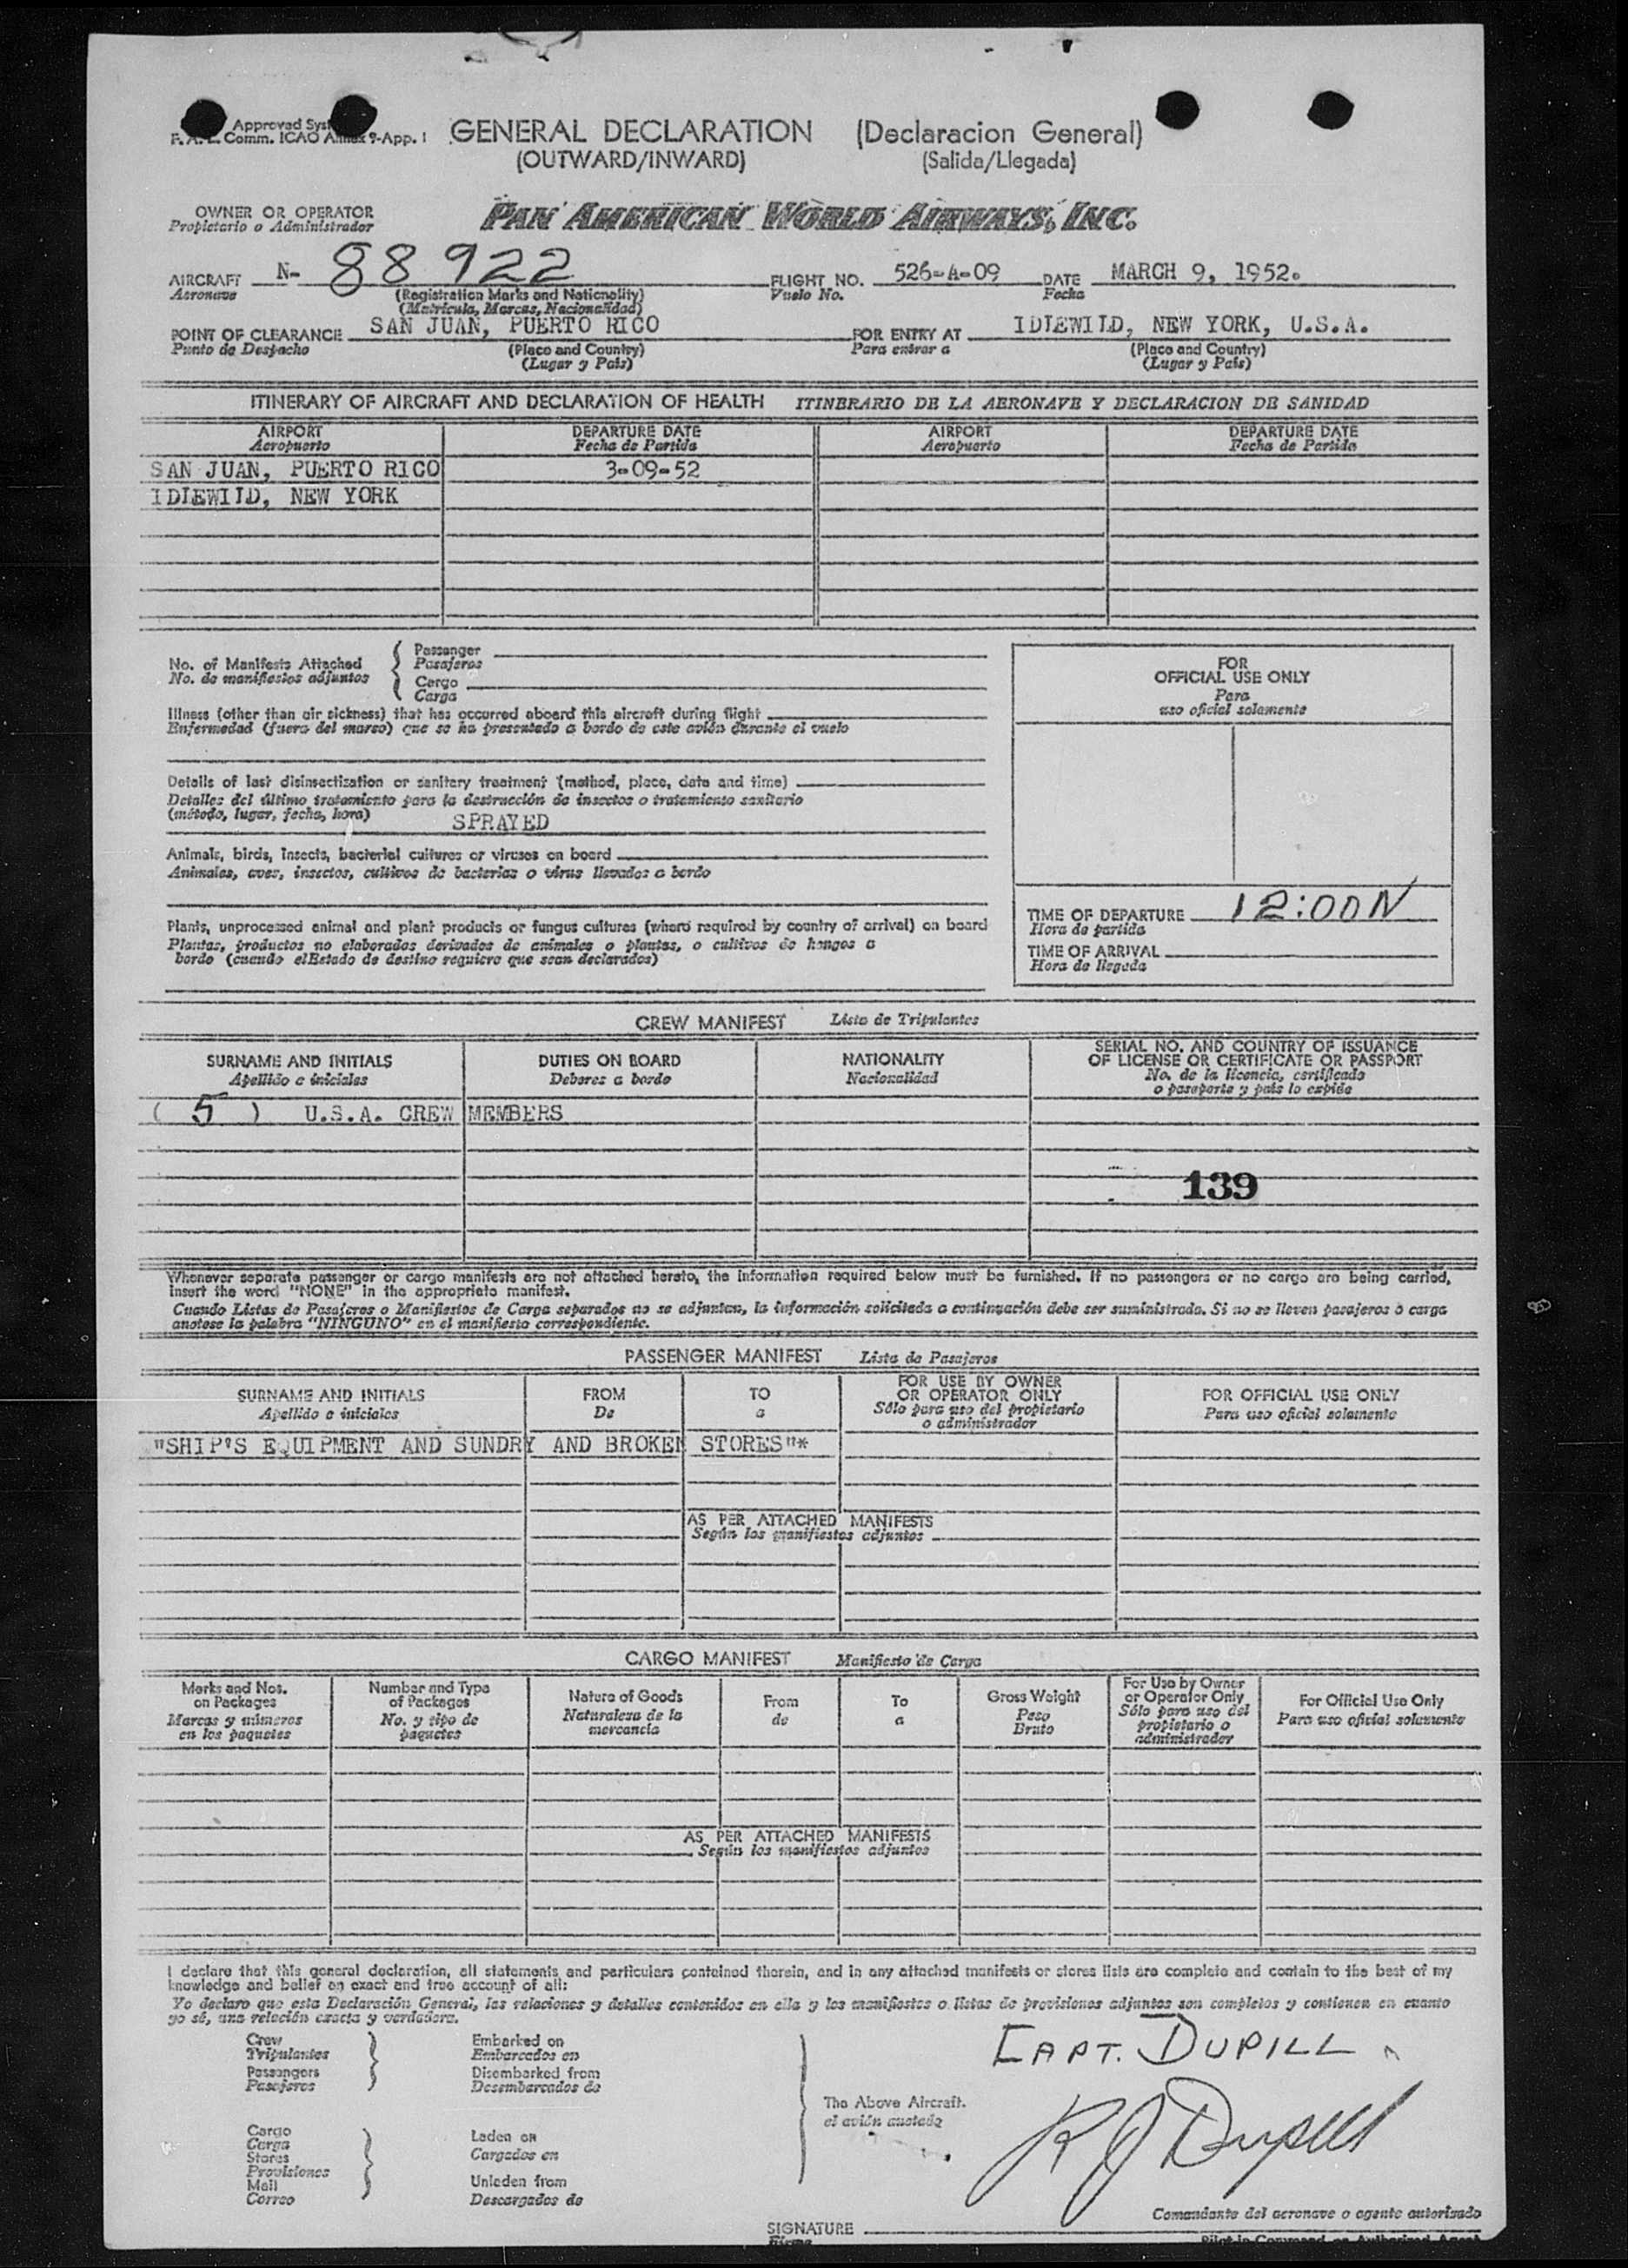 Approved Syst
F. A. L. Comm. ICAO Annex 9-App. I
GENERAL DECLARATION (Declaracion General)
(OUTWARD/INWARD) (Salida/Llegada)
OWNER OR OPERATOR
Propietario o Administrador
PAN AMERICAN WORLD AIRWAYS, INC.
AIRCRAFT N- 88922 FLIGHT NO. 526-A-09 DATE MARCH 9, 1952.
Aeronave (Registration Marks and Nationality) Vuelo No. Fecha
(Matricula, Marcas, Nacionalidad)
POINT OF CLEARANCE SAN JUAN, PUERTO RICO FOR ENTRY AT IDLEWILD, NEW YORK, U.S.A.
Punto de Despacho (Place and Country) Para entrar a (Place and Country)
(Lugar y País) (Lugar y País)
ITINERARY OF AIRCRAFT AND DECLARATION OF HEALTH ITINERARIO DE LA AERONAVE Y DECLARACION DE SANIDAD
AIRPORT DEPARTURE DATE AIRPORT DEPARTURE DATE
Aeropuerto Fecha de Partida Aeropuerto Fecha de Partida
SAN JUAN, PUERTO RICO 3-09-52
IDLEWILD, NEW YORK
No. of Manifests Attached
No. de manifiestos adjuntos
Passenger
Pasajeros
Cargo
Carga
Illness (other than air sickness) that has occurred aboard this aircraft during flight
Enfermedad (fuera del mareo) que se ha presentado a bordo de este avión durante el vuelo
Details of last disinsectization or sanitary treatment (method, place, date and time)
Detalles del último tratamiento para la destrucción de insectos o tratamiento sanitario
(método, lugar, fecha, hora) SPRAYED
Animals, birds, insects, bacterial cultures or viruses on board
Animales, aves, insectos, cultivos de bacterias o virus llevados a bordo
Plants, unprocessed animal and plant products or fungus cultures (where required by country of arrival) on board
Plantas, productos no elaborados derivados de animales o plantas, o cultivos de hongos a
bordo (cuando el Estado de destino requiere que sean declarados)
FOR
OFFICIAL USE ONLY
Para
uso oficial solamente
TIME OF DEPARTURE 12:00N
Hora de partida
TIME OF ARRIVAL
Hora de llegada
CREW MANIFEST Lista de Tripulantes
SURNAME AND INITIALS DUTIES ON BOARD NATIONALITY SERIAL NO. AND COUNTRY OF ISSUANCE
OF LICENSE OR CERTIFICATE OR PASSPORT
Apellido e iniciales Deberes a bordo Nacionalidad No. de la licencia, certificado
o pasaporte y país lo expide
( 5 ) U.S.A. CREW MEMBERS
139
Whenever separate passenger or cargo manifests are not attached hereto, the information required below must be furnished. If no passengers or no cargo are being carried,
insert the word "NONE" in the appropriate manifest.
Cuando Listas de Pasajeros o Manifiestos de Carga separados no se adjuntan, la información solicitada a continuación debe ser suministrada. Si no se lleven pasajeros ó carga
anotese la palabra "NINGUNO" en el manifiesto correspondiente.
PASSENGER MANIFEST Lista de Pasajeros
SURNAME AND INITIALS FROM TO FOR USE BY OWNER
OR OPERATOR ONLY FOR OFFICIAL USE ONLY
Apellido e iniciales De a Sólo para uso del propietario
o administrador Para uso oficial solamente
"SHIP'S EQUIPMENT AND SUNDRY AND BROKEN STORES"*
AS PER ATTACHED MANIFESTS
Según los manifiestos adjuntos
CARGO MANIFEST Manifiesto de Carga
Marks and Nos.
on Packages
Marcas y números
en los paquetes
Number and Type
of Packages
No. y tipo de
paquetes
Nature of Goods
Naturaleza de la
mercancia
From
de
To
a
Gross Weight
Peso
Bruto
For Use by Owner
or Operator Only
Sólo para uso del
propietario o
administrador
For Official Use Only
Para uso oficial solamente
AS PER ATTACHED MANIFESTS
Según los manifiestos adjuntos
I declare that this general declaration, all statements and particulars contained therein, and in any attached manifests or stores lists are complete and contain to the best of my
knowledge and belief an exact and true account of all:
Yo declaro que esta Declaración General, las relaciones y detalles contenidos en ella y los manifiestos o listas de provisiones adjuntos son completos y contienen en cuanto
yo sé, una relación exacta y verdadera.
Crew
Tripulantes
Passengers
Pasajeros
Embarked on
Embarcados en
Disembarked from
Desembarcados de
Cargo
Carga
Stores
Provisiones
Mail
Correo
Laden on
Cargados en
Unladen from
Descargados de
The Above Aircraft.
el avión anotado
CAPT. DUPILL
R J Dupill
Comandante del aeronave o agente autorizado
SIGNATURE
Firma
Pilot in Command or Authorized Agent